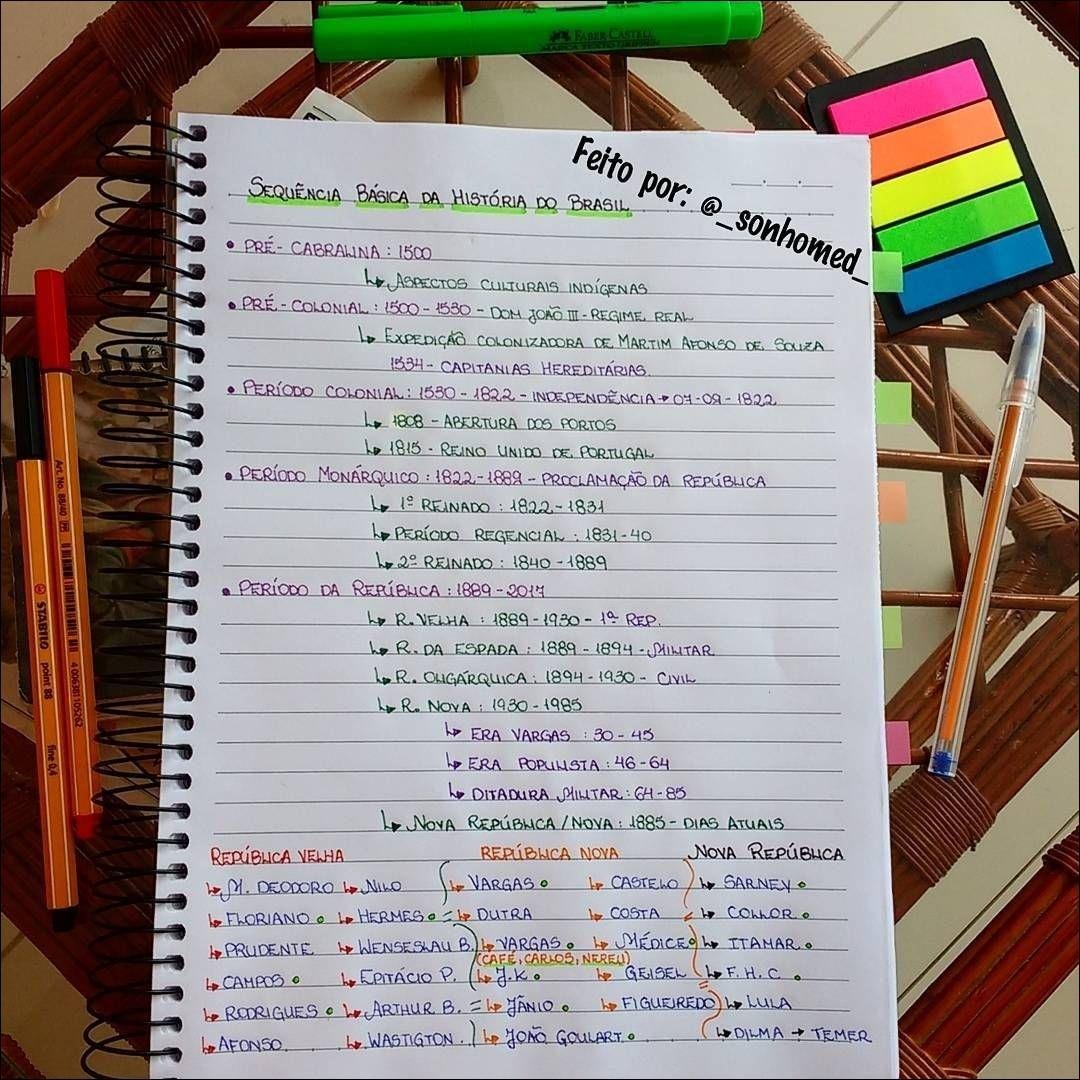 FABER-CASTELL
Feito por: @_sonhomed_
SEQUÊNCIA BÁSICA DA HISTÓRIA DO BRASIL
• PRÉ-CABRALINA : 1500
↳ ASPECTOS CULTURAIS INDÍGENAS
• PRÉ-COLONIAL : 1500 - 1530 - DOM JOÃO III - REGIME REAL
↳ EXPEDIÇÃO COLONIZADORA DE MARTIM AFONSO DE SOUZA
1534 - CAPITANIAS HEREDITÁRIAS.
• PERÍODO COLONIAL : 1530 - 1822 - INDEPENDÊNCIA → 07-09-1822
↳ 1808 - ABERTURA DOS PORTOS
↳ 1815 - REINO UNIDO DE PORTUGAL
• PERÍODO MONÁRQUICO : 1822-1889 - PROCLAMAÇÃO DA REPÚBLICA
↳ 1º REINADO : 1822 - 1831
↳ PERÍODO REGENCIAL : 1831-40
↳ 2º REINADO : 1840 - 1889
• PERÍODO DA REPÚBLICA : 1889 - 2017
↳ R. VELHA : 1889 - 1930 - 1ª REP.
↳ R. DA ESPADA : 1889 - 1894 - MILITAR
↳ R. OLIGÁRQUICA : 1894 - 1930 - CIVIL
↳ R. NOVA : 1930 - 1985
↳ ERA VARGAS : 30 - 45
↳ ERA POPULISTA : 46-64
↳ DITADURA MILITAR : 64-85
↳ NOVA REPÚBLICA / NOVA : 1885 - DIAS ATUAIS
REPÚBLICA VELHA REPÚBLICA NOVA NOVA REPÚBLICA
↳ M. DEODORO ↳ NILO ↳ VARGAS • ↳ CASTELO ↳ SARNEY •
↳ FLORIANO • ↳ HERMES • = ↳ DUTRA ↳ COSTA ↳ COLLOR •
↳ PRUDENTE ↳ WENSESLAU B. ↳ VARGAS • ↳ MÉDICE • ↳ ITAMAR •
(CAFÉ, CARLOS, NEREU)
↳ CAMPOS • ↳ EPITÁCIO P. ↳ J.K • ↳ GEISEL ↳ F.H.C. •
↳ RODRIGUES • ↳ ARTHUR B. = ↳ JÂNIO • ↳ FIGUEIREDO ↳ LULA
↳ AFONSO ↳ WASTIGTON . ↳ JOÃO GOULART • ↳ DILMA → TEMER
Art. No. 88/40
4 006381 105262
STABILO point 88 fine 0,4